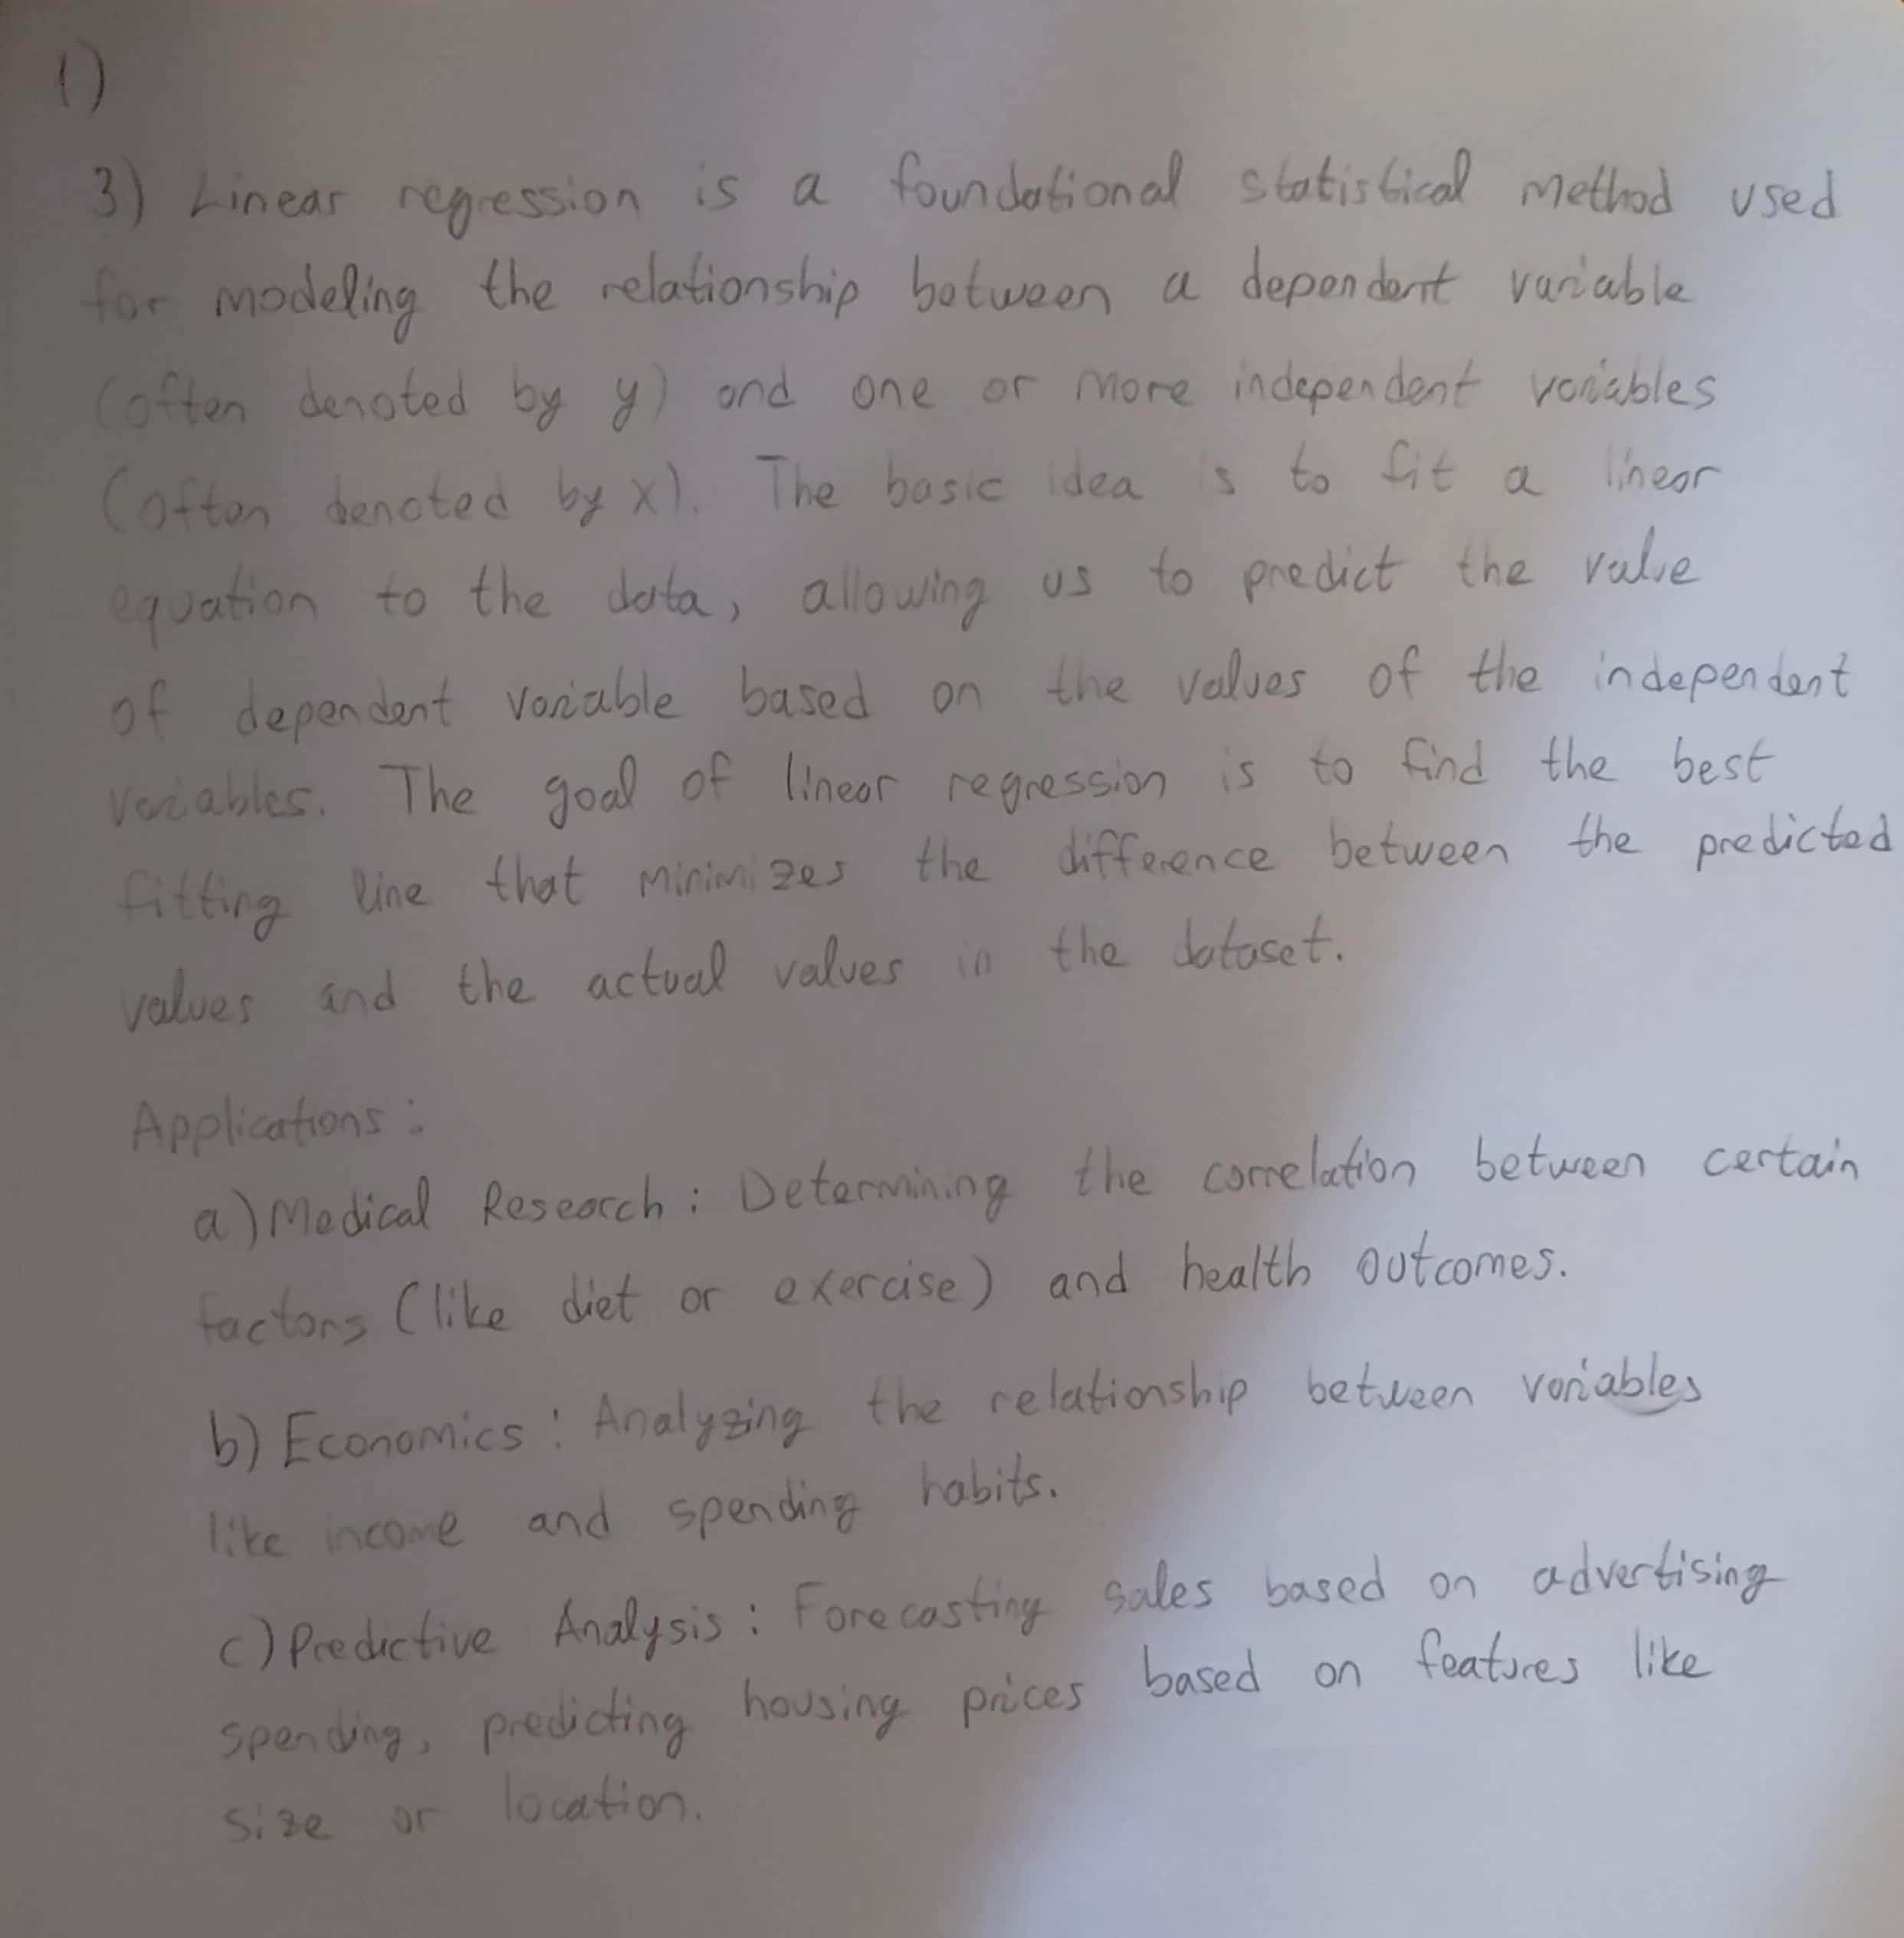 1)
3) Linear regression is a foundational statistical method used
for modeling the relationship between a dependent variable
(often denoted by y) and one or more independent variables
(often denoted by x). The basic idea is to fit a linear
equation to the data, allowing us to predict the value
of dependent variable based on the values of the independent
variables. The goal of linear regression is to find the best
fitting line that minimizes the difference between the predicted
values and the actual values in the dataset.
Applications:
a) Medical Research: Determining the correlation between certain
factors (like diet or exercise) and health outcomes.
b) Economics: Analyzing the relationship between variables
like income and spending habits.
c) Predictive Analysis: Forecasting sales based on advertising
spending, predicting housing prices based on features like
size or location.